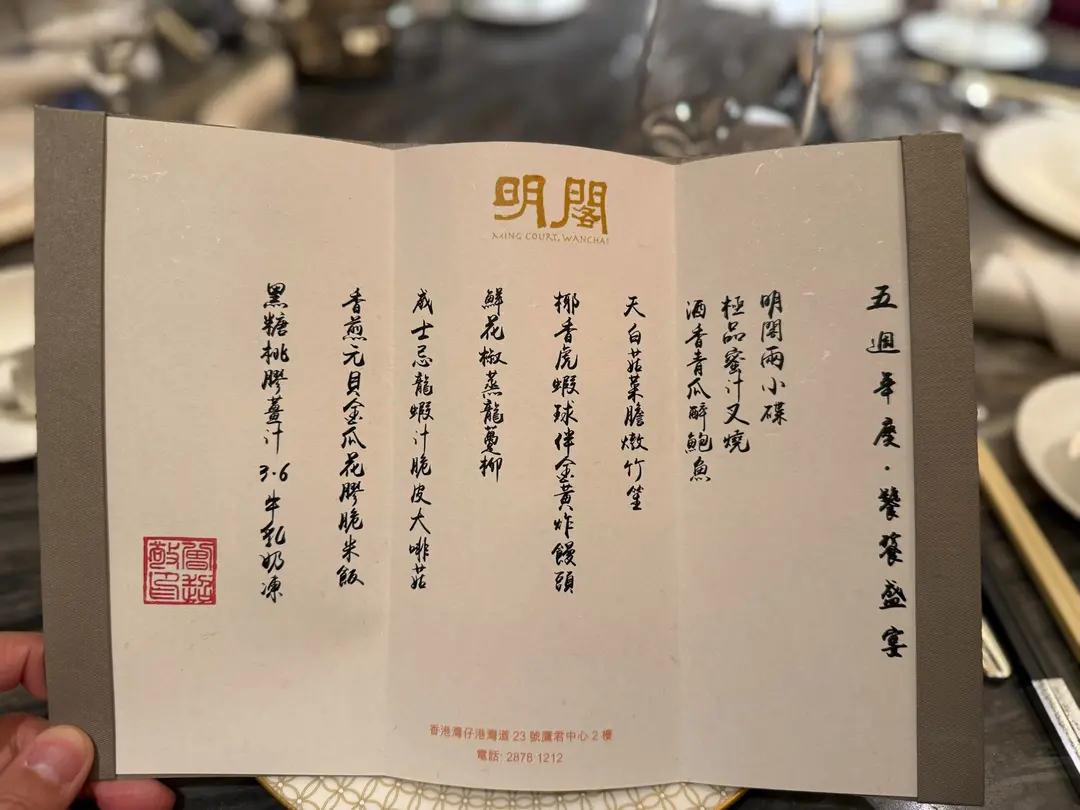 明閣
MING COURT, WANCHAI
五週年度·饕餮盛宴
明閣兩小碟
極品蜜汁叉燒
酒香青瓜醉鮑魚
天白菇菜膽燉竹笙
椰香虎蝦球伴金黃炸饅頭
鮮花椒蒸龍躉柳
威士忌龍蝦汁脆皮大啡菇
香煎元貝金瓜花膠脆米飯
黑糖桃膠薑汁3.6牛乳奶凍
香港灣仔港灣道 23 號鷹君中心 2 樓
電話: 2878 1212